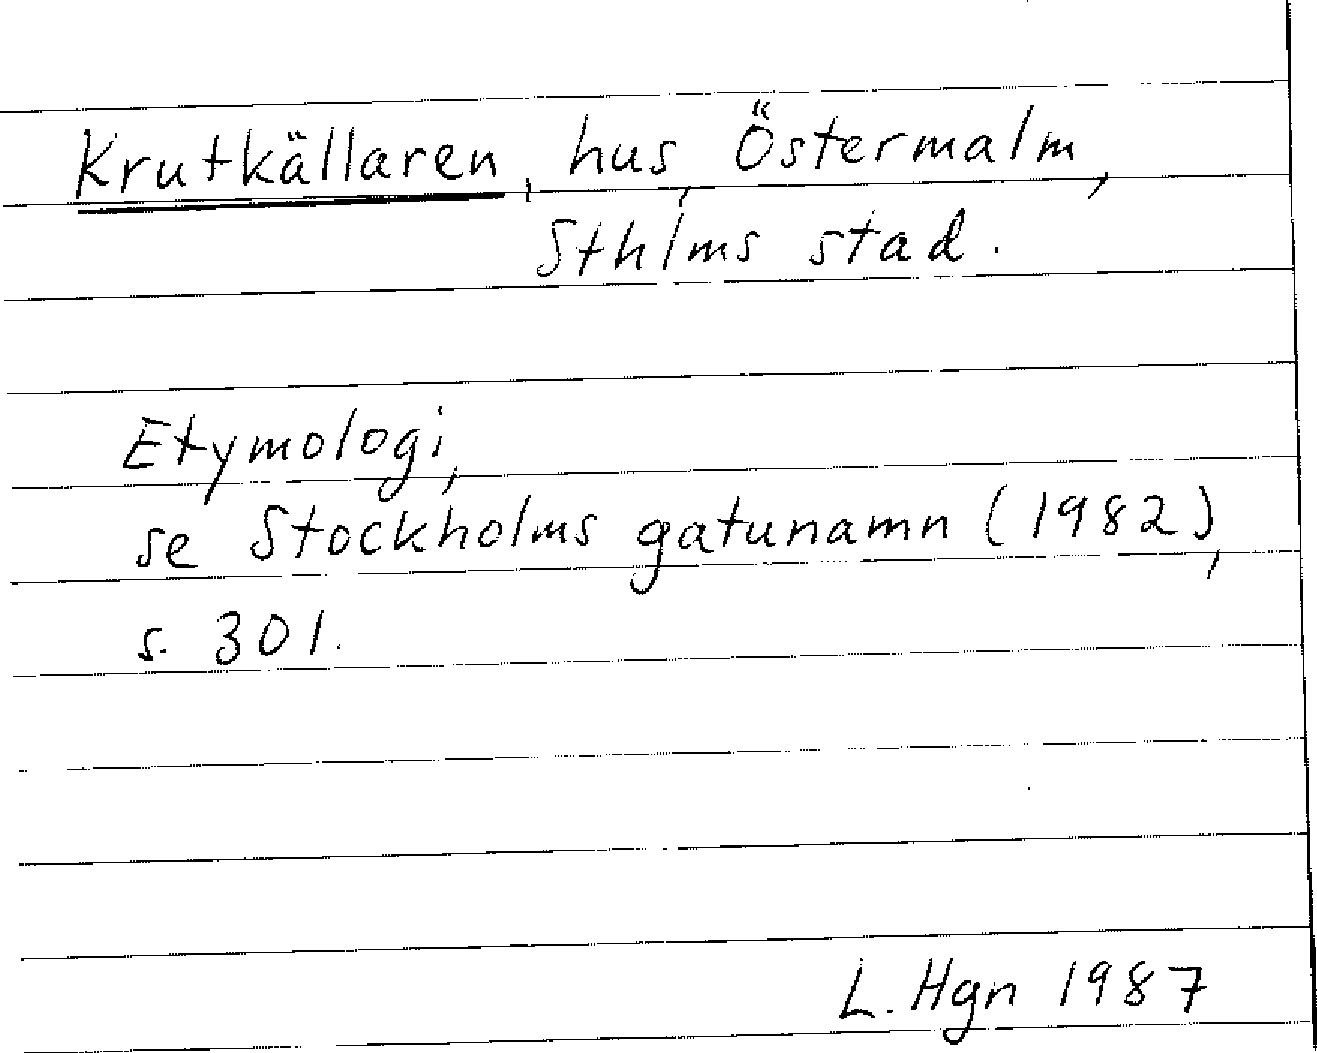 Krutkällaren, hus, Östermalm,
Sthlms stad.
Etymologi,
se Stockholms gatunamn (1982),
s. 301.
L. Hgn 1987